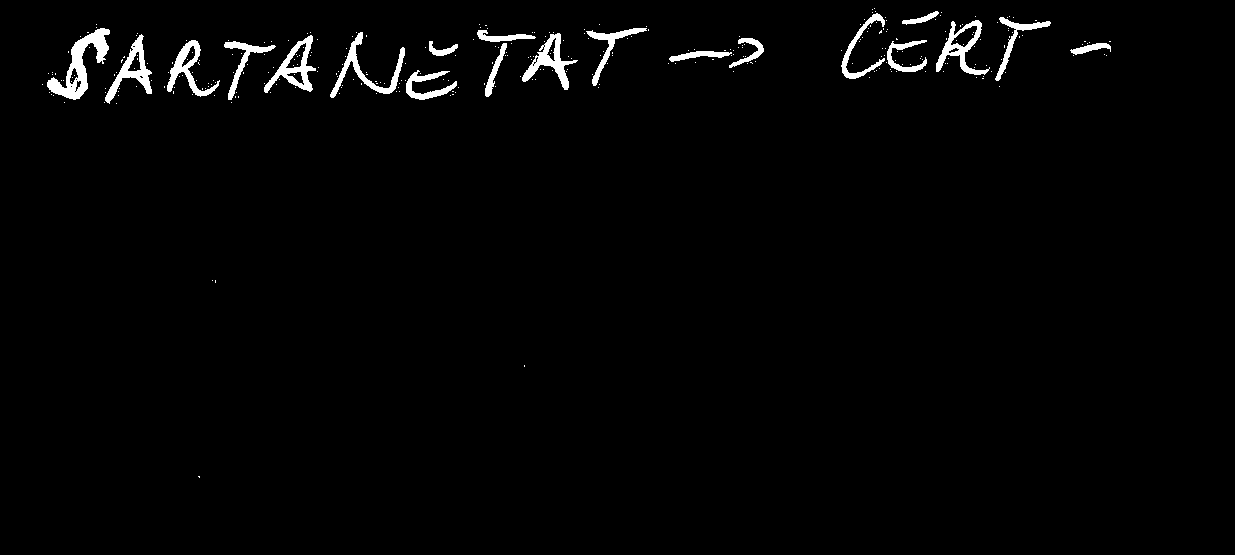 SARTANĔTAT → CERT -